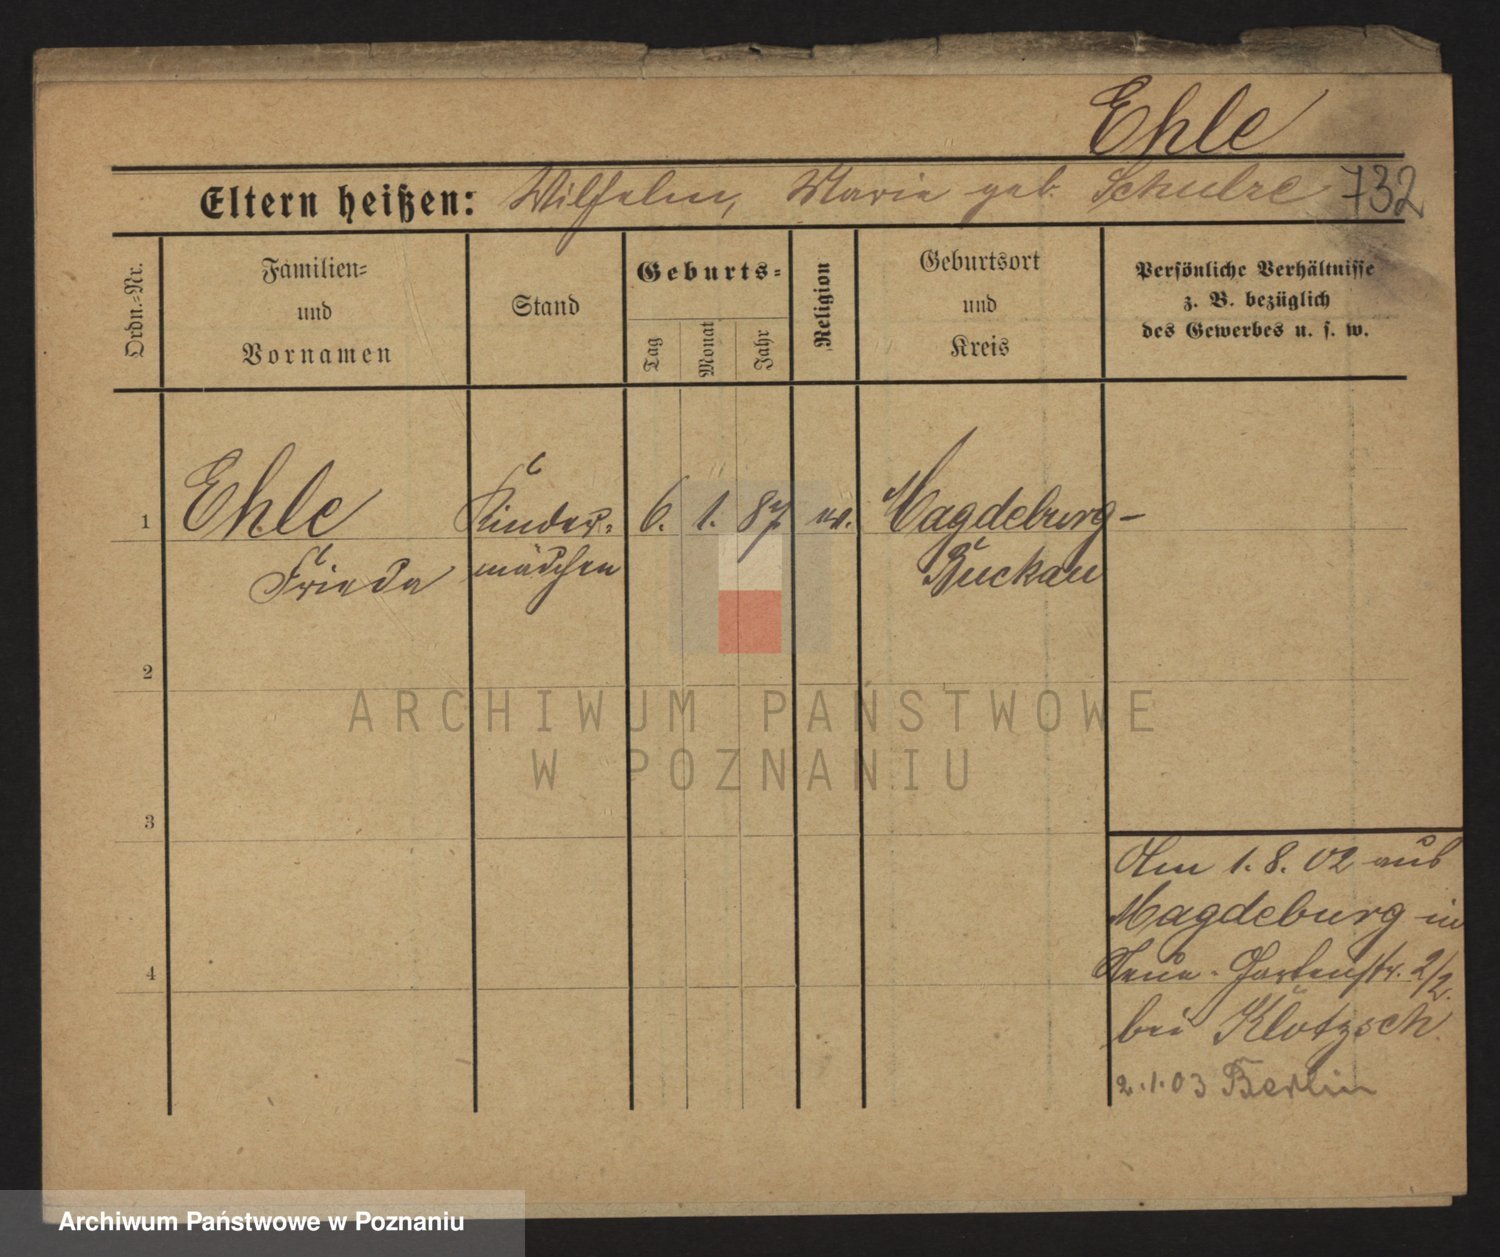 Ehle
Eltern heißen: Wilhelm, Marie geb. Schulze 732
Ordn.-Nr.
Familien-
und
Vornamen
Stand
Geburts-
Tag
Monat
Jahr
Religion
Geburtsort
und
Kreis
Persönliche Verhältnisse
z. B. bezüglich
des Gewerbes u. s. w.
1 Ehle Kinder- 6. 1. 87 ev. Magdeburg-
Frieda mädchen Buckau
2
ARCHIWUM PAŃSTWOWE
W POZNANIU
3
Am 1.8.02 aus
Magdeburg in
Neue-Gartenstr. 2/2.
4
bei Klötzsch.
2.1.03 Berlin
Archiwum Państwowe w Poznaniu